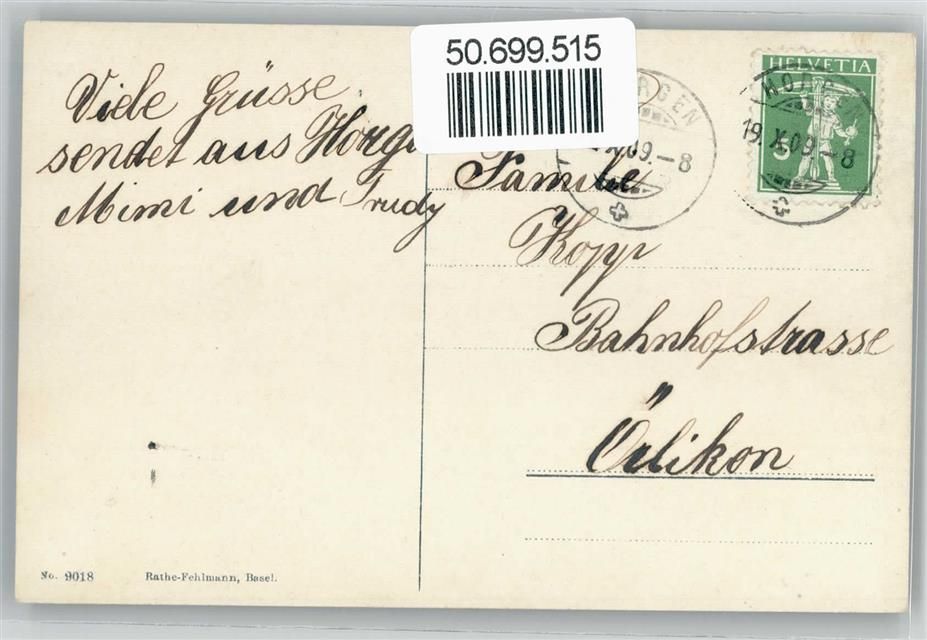 50.699.515
Viele Grüsse
sendet aus Horge
Mimi und Trudy
HELVETIA
5
HORGEN
19.X.09.-8
RGEN
X.09.-8
Familie
Kopp
Bahnhofstrasse
Örlikon
No. 9018
Rathe-Fehlmann, Basel.